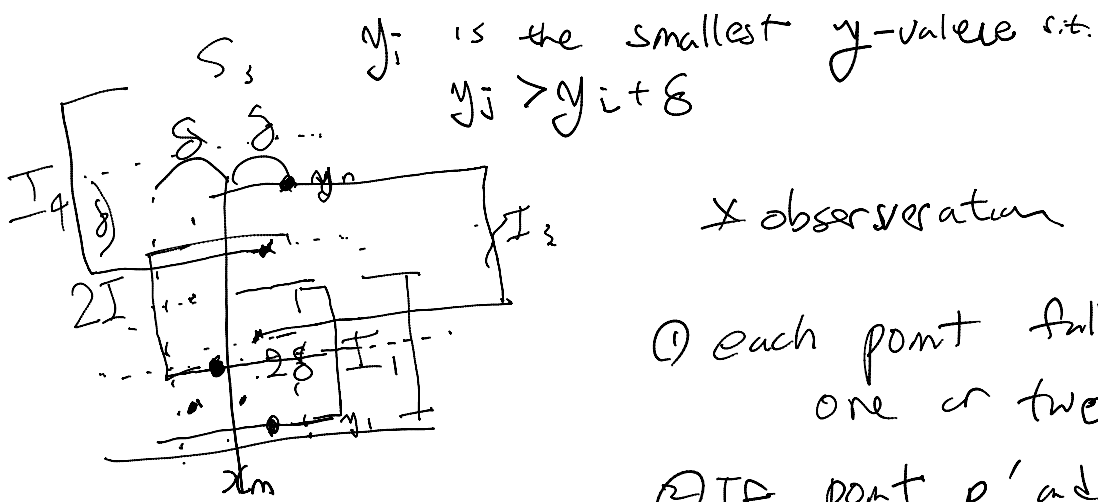 y_j is the smallest y-value s.t.
y_j > y_i + δ
S_3
δ δ ...
I_4
δ
y_n
I_3
2I
2δ I_1
y_1
x_m
* obserseration
① each point fal
one or two
② If point p' and